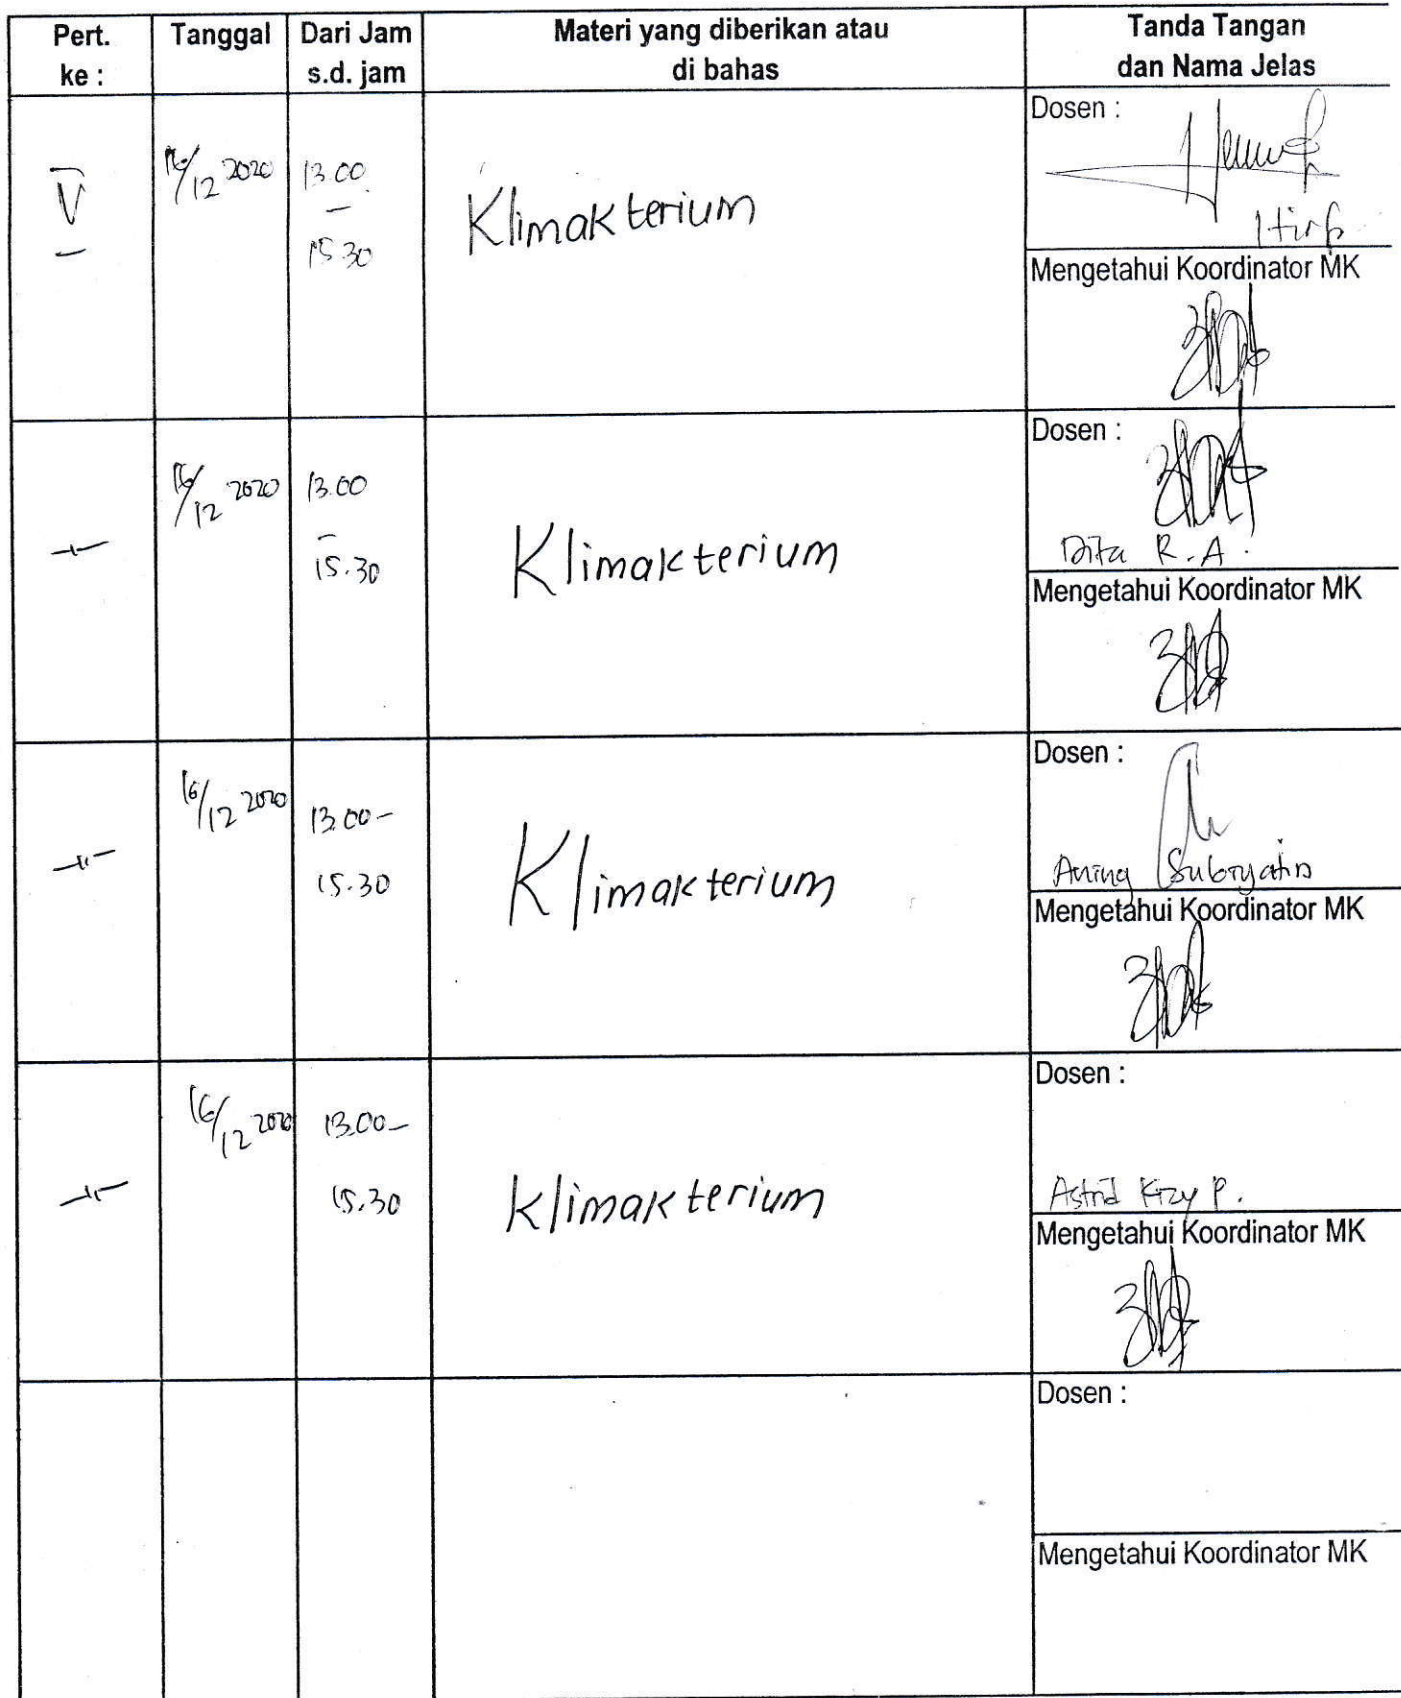 Pert. ke :
Tanggal
Dari Jam s.d. jam
Materi yang diberikan atau di bahas
Tanda Tangan dan Nama Jelas
V
16/12 2020
13.00 – 15.30
Klimakterium
Dosen :
Mengetahui Koordinator MK
–〃–
16/12 2020
13.00 – 15.30
Klimakterium
Dosen :
Dita R.A.
Mengetahui Koordinator MK
–〃–
16/12 2020
13.00 – 15.30
Klimakterium
Dosen :
Aning
Mengetahui Koordinator MK
–〃–
16/12 2020
13.00 – 15.30
Klimakterium
Dosen :
Astrid P.
Mengetahui Koordinator MK
Dosen :
Mengetahui Koordinator MK